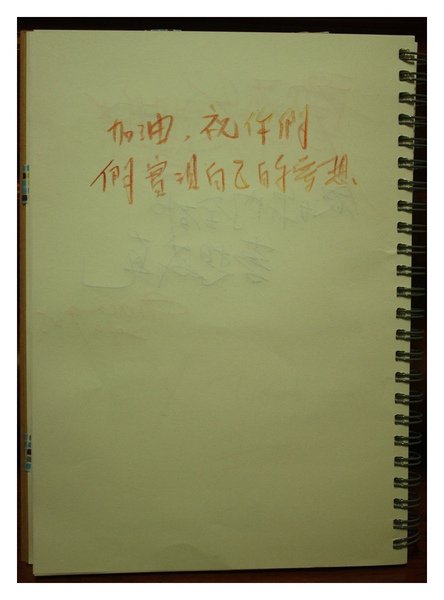 加油，祝你們
們實現自己的夢想